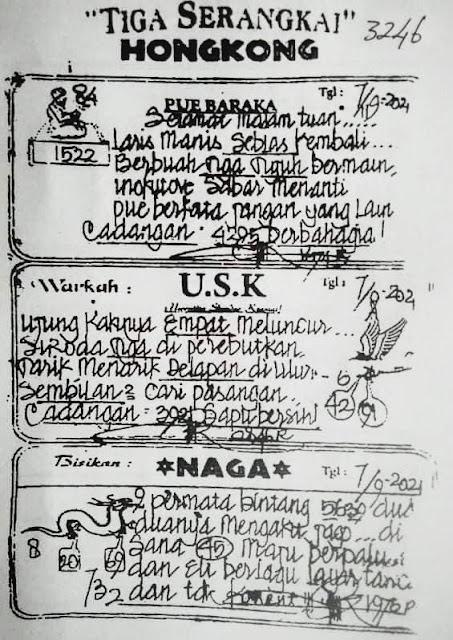 "TIGA SERANGKAI"
HONGKONG
3246
84
1522
PUE BARAKA
Tgl : 7/10-2021
Selamat malam tuan.....
Laris Manis Sebias Kembali...
Berbuah Tiga Tujuh bermain,
Sabar Menanti
pue berkata jangan yang Lain
Cadangan : 4295 Berbahagia!
Warkah :
U.S.K
Tgl : 7/10-2021
Ujung Kakinya Empat Meluncur...
Si Roda Tiga di perebutkan
Tarik Menarik Delapan di Ulur-
Sembilan 2 Cari pasangan..
Cadangan = 3921 Saptu bersih!
6
42
9
Bisikan :
NAGA
Tgl : 7/10-2021
9 permata bintang 5639 dua
duanya Mengaku jago...di
Sana 45 Mapu berpalu
dan Eli berlagu
dan tdk
8
20
69
7/32
1976 P